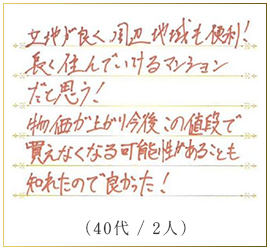 立地が良く周辺地域も便利！
長く住んでいけるマンション
だと思う！
物価が上がり今後この値段で
買えなくなる可能性があることも
知れたので良かった！
(40代 / 2人)